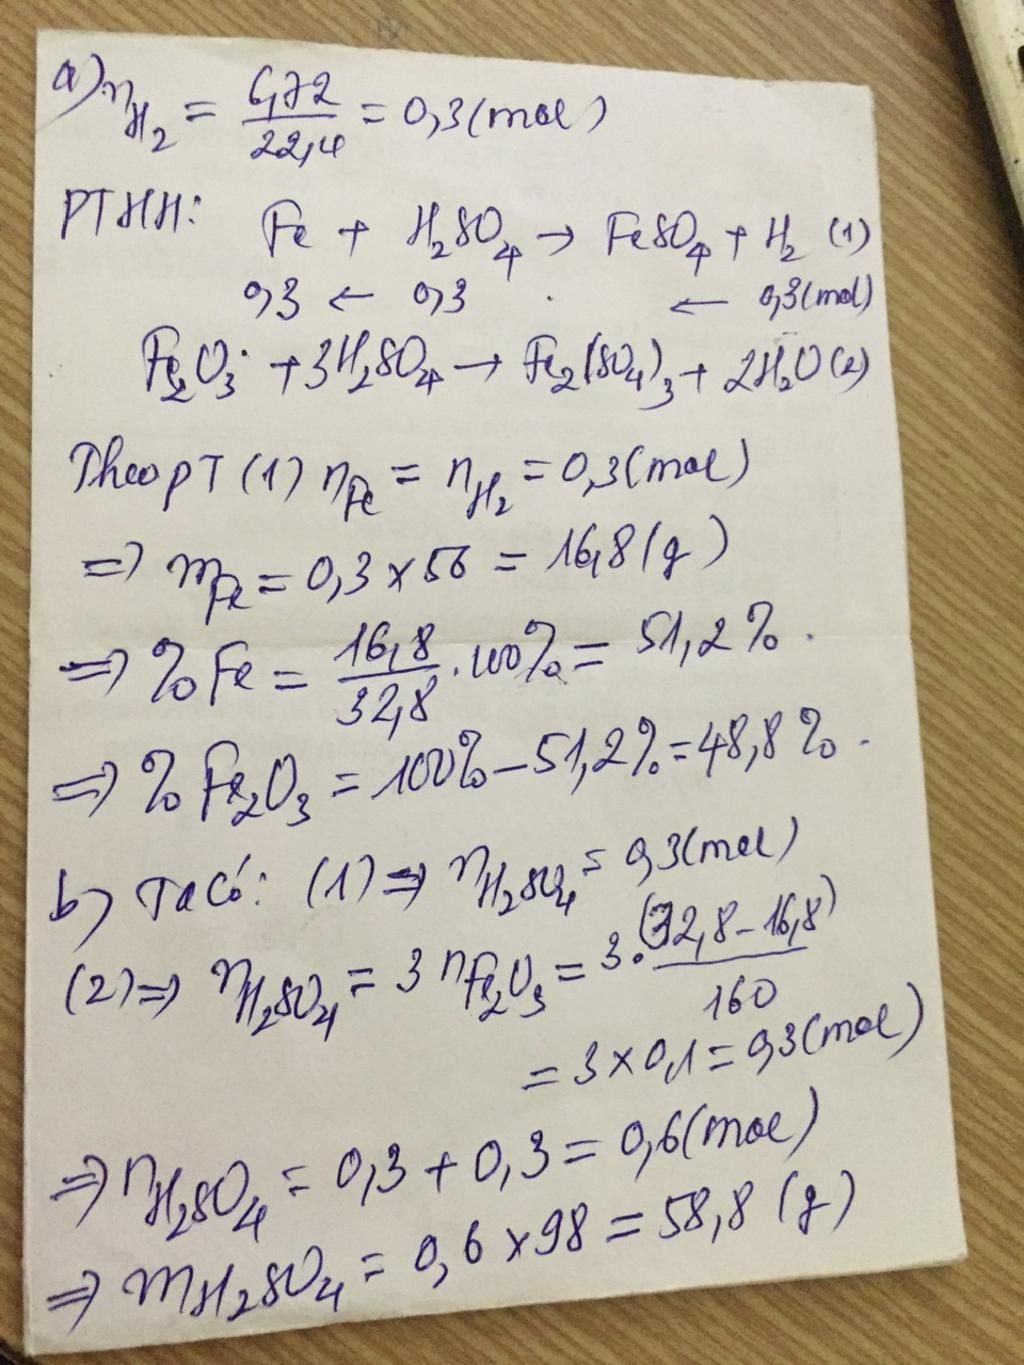 a) nH₂ = 6,72/22,4 = 0,3 (mol)
PTHH: Fe + H₂SO₄ → FeSO₄ + H₂ (1)
0,3 ← 0,3 ← 0,3 (mol)
Fe₂O₃ + 3H₂SO₄ → Fe₂(SO₄)₃ + 2H₂O (2)
Theo pT (1) nFe = nH₂ = 0,3 (mol)
=> mFe = 0,3 × 56 = 16,8 (g)
=> % Fe = 16,8/32,8 . 100% = 51,2 % .
=> % Fe₂O₃ = 100% - 51,2% = 48,8 % .
b) Ta có: (1) => nH₂SO₄ = 0,3 (mol)
(2) => nH₂SO₄ = 3 nFe₂O₃ = 3 . (32,8 - 16,8)/160
= 3 × 0,1 = 0,3 (mol)
=> nH₂SO₄ = 0,3 + 0,3 = 0,6 (mol)
=> mH₂SO₄ = 0,6 × 98 = 58,8 (g)